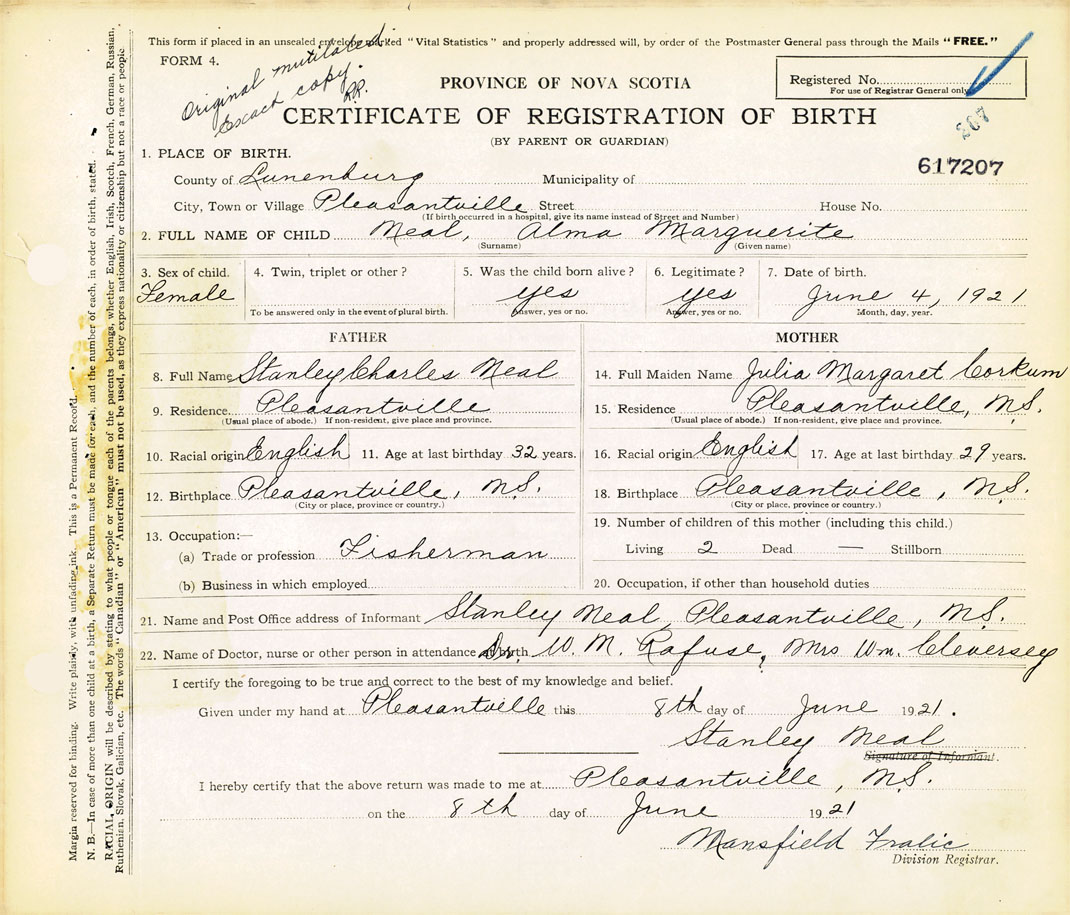 This form if placed in an unsealed envelope marked "Vital Statistics" and properly addressed will, by order of the Postmaster General pass through the Mails "FREE."
FORM 4.
Original mutilated.
Exact copy.
R.R.
PROVINCE OF NOVA SCOTIA
Registered No.
For use of Registrar General only
CERTIFICATE OF REGISTRATION OF BIRTH
207
(BY PARENT OR GUARDIAN)
617207
1. PLACE OF BIRTH.
County of Lunenburg Municipality of
City, Town or Village Pleasantville Street House No.
(If birth occurred in a hospital, give its name instead of Street and Number)
2. FULL NAME OF CHILD Neal, Alma Marguerite
(Surname) (Given name)
3. Sex of child. 4. Twin, triplet or other? 5. Was the child born alive? 6. Legitimate? 7. Date of birth.
Female yes yes June 4, 1921
To be answered only in the event of plural birth. Answer, yes or no. Answer, yes or no. Month, day, year.
FATHER MOTHER
8. Full Name Stanley Charles Neal 14. Full Maiden Name Julia Margaret Corkum
9. Residence Pleasantville 15. Residence Pleasantville, N.S.
(Usual place of abode.) If non-resident, give place and province. (Usual place of abode.) If non-resident, give place and province.
10. Racial origin English 11. Age at last birthday 32 years. 16. Racial origin English 17. Age at last birthday 29 years.
12. Birthplace Pleasantville, N.S. 18. Birthplace Pleasantville, N.S.
(City or place, province or country.) (City or place, province or country.)
13. Occupation:— 19. Number of children of this mother (including this child.)
(a) Trade or profession Fisherman Living 2 Dead — Stillborn
(b) Business in which employed 20. Occupation, if other than household duties
21. Name and Post Office address of Informant Stanley Neal, Pleasantville, N.S.
22. Name of Doctor, nurse or other person in attendance at birth Dr. W. M. Rafuse, Mrs Wm. Cleversey
I certify the foregoing to be true and correct to the best of my knowledge and belief.
Given under my hand at Pleasantville this 8th day of June 1921.
Stanley Neal
Signature of Informant.
I hereby certify that the above return was made to me at Pleasantville, N.S.
on the 8th day of June 1921
Mansfield Fralic
Division Registrar.
Margin reserved for binding. Write plainly, with unfading ink. This is a Permanent Record.
N. B.—In case of more than one child at a birth, a Separate Return must be made for each, and the number of each, in order of birth, stated.
RACIAL ORIGIN will be described by stating to what people or tongue each of the parents belongs, whether English, Irish, Scotch, French, German, Russian,
Ruthenian, Slovak, Galician, etc. The words "Canadian" or "American" must not be used, as they express nationality or citizenship but not a race or people.